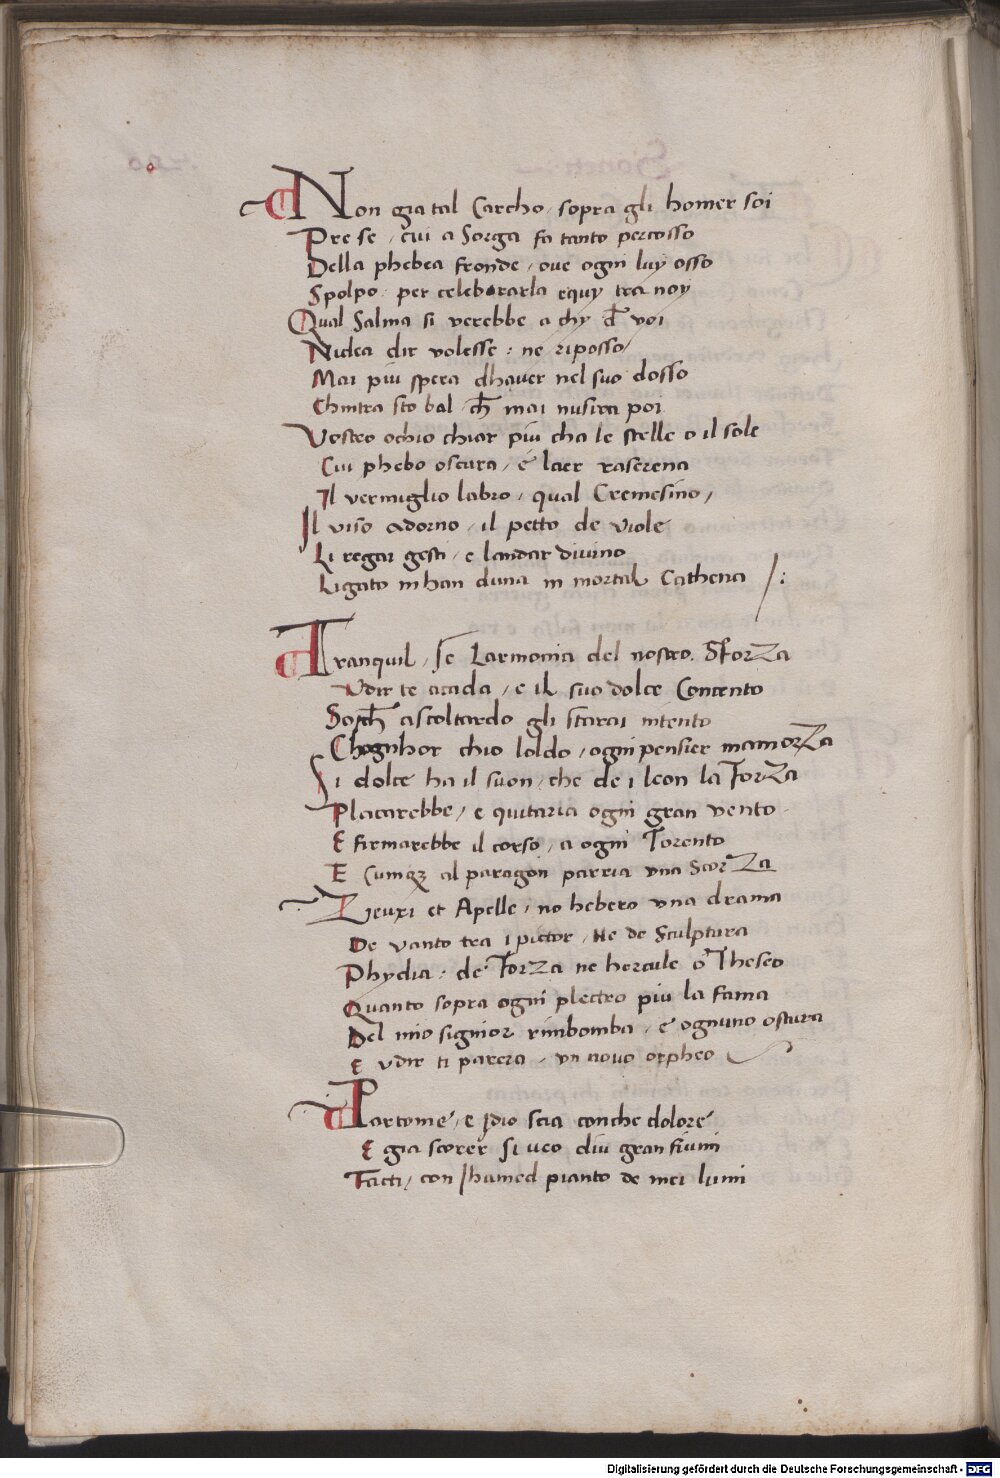 Non gia tal Carcho, sopra gli homer soi
Prese, cui a Sorga fa tanto percosso
Della phebea fronde, ove ogni luy osso
Spolpo per celebrarla equy tra noy
Qual Salma si verebbe a chy de voi
Nidea dir volesse: ne riposso
Mai piu spera dhaver nel suo dosso
Chintra sto bal, che mai nusira poi
Vostro ochio chiar piu cha le stelle o il sole
Cui phebo oscura, e laer raserena
Il vermiglio labro, qual Cremesino,
Il viso adorno, il petto de viole
Li regai gesti, e landar divino
Ligato mhan duna in mortal Cathena /:
Tranquil, se Larmonia del nostro Sforza
Vdir te acada, e il suo dolce Concento
Soche ascoltardo gli starai intento
Chognhor chio loldo, ogni pensier mamorza
Si dolce ha il suon, che de i leon la forza
Placarebbe, e quitaria ogni gran vento
E firmarebbe il corso, a ogni Torento
E Cumque al paragon parria una Scorza
Zeuxi et Apelle, no hebero una drama
De vanto tra i pictor, Ne de Sculptura
Phydia: de forza ne hercule o Theseo
Quanto sopra ogni plectro piu la fama
Del mio signior rimbomba, e ognuno oscura
E vdir ti parera, un novo orpheo
Partome, e Idio scia con che dolore
E gia scorer si veo diu gran fiumi
Facti, con lhumed pianto de mei lumi
Digitalisierung gefördert durch die Deutsche Forschungsgemeinschaft - DFG